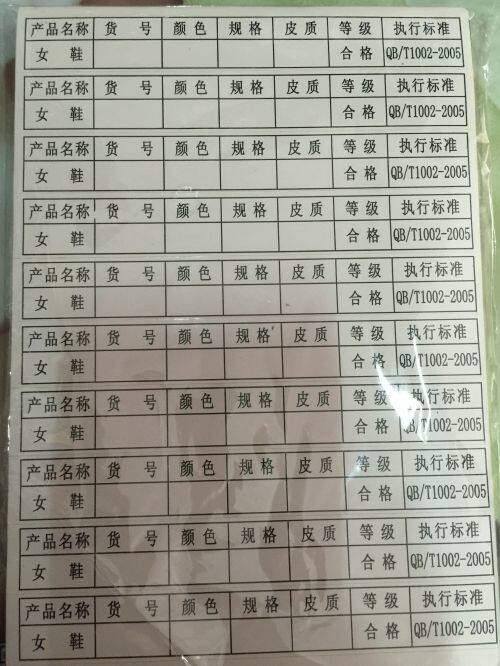 产品名称 货号 颜色 规格 皮质 等级 执行标准
女鞋 合格 QB/T1002-2005
产品名称 货号 颜色 规格 皮质 等级 执行标准
女鞋 合格 QB/T1002-2005
产品名称 货号 颜色 规格 皮质 等级 执行标准
女鞋 合格 QB/T1002-2005
产品名称 货号 颜色 规格 皮质 等级 执行标准
女鞋 合格 QB/T1002-2005
产品名称 货号 颜色 规格 皮质 等级 执行标准
女鞋 合格 QB/T1002-2005
产品名称 货号 颜色 规格 皮质 等级 执行标准
女鞋 合格 QB/T1002-2005
产品名称 货号 颜色 规格 皮质 等级 执行标准
女鞋 合格 QB/T1002-2005
产品名称 货号 颜色 规格 皮质 等级 执行标准
女鞋 合格 QB/T1002-2005
产品名称 货号 颜色 规格 皮质 等级 执行标准
女鞋 合格 QB/T1002-2005
产品名称 货号 颜色 规格 皮质 等级 执行标准
女鞋 合格 QB/T1002-2005